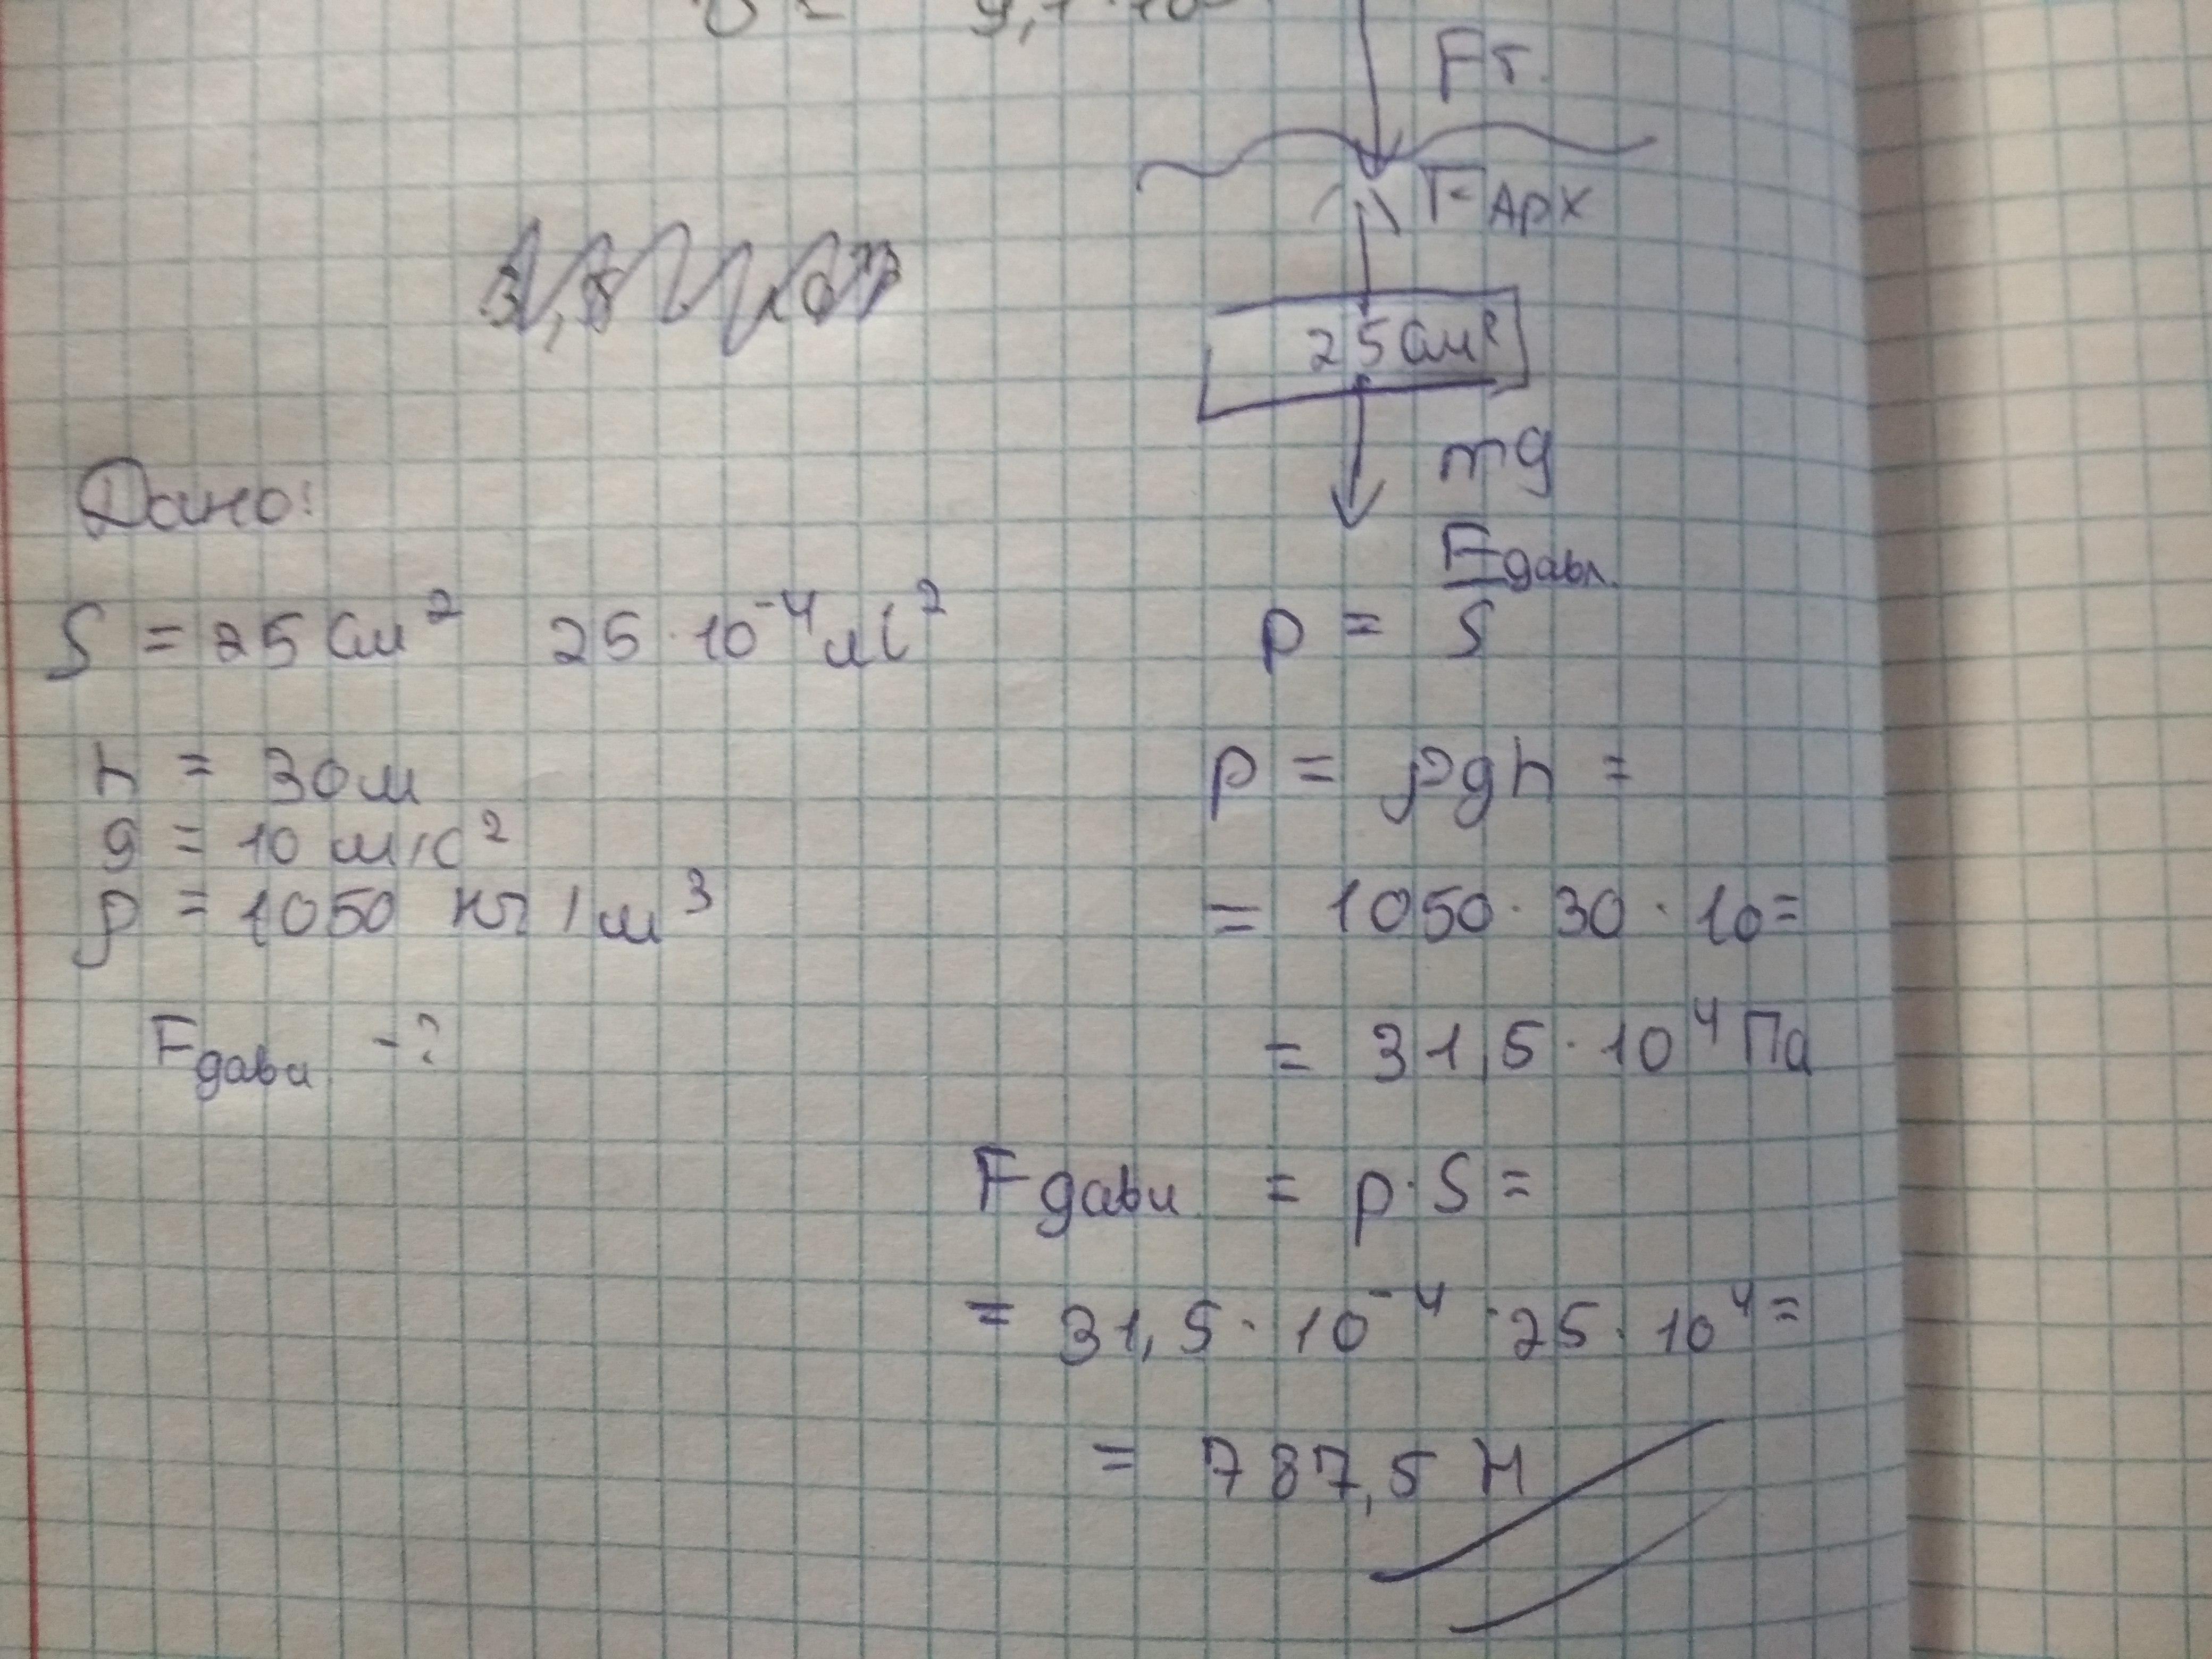 Fт.
FАрх
25 см²
mg
Дано:
S = 25 см² 25 · 10⁻⁴ м²
h = 30 м
g = 10 м/с²
ρ = 1050 кг/м³
Fдавл - ?
p = Fдавл. / S
p = ρgh =
= 1050 · 30 · 10 =
= 31,5 · 10⁴ Па
Fдавл = p · S =
= 31,5 · 10⁻⁴ · 25 · 10⁴ =
= 787,5 Н